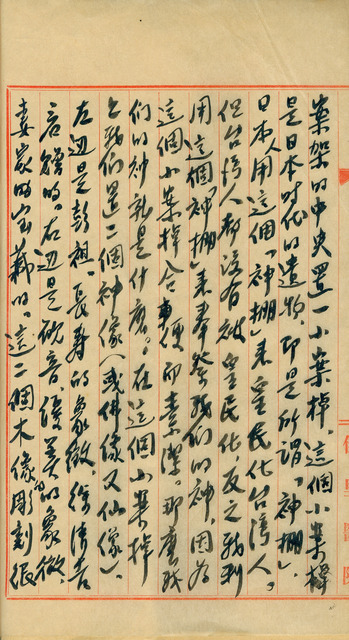 案架的中央置一小案棹，這個小案棹
是日本时代的遺物，即是所謂「神棚」，
日本人用這個「神棚」来皇民化台湾人。
但台湾人都没有被皇民化，反之我利
用這個「神棚」来奉祭我们的神，因为
這個小案棹合事便而清潔。那麼我
们的神就是什麼。在這個小案棹
上我们置二個神像（或佛像又仙像）。
左辺是彭祖。長寿的象徵，徐清吉
君贈的。右辺是观音。優美的象徵，
妻家的宝藏的。這二個木像的彫刻很